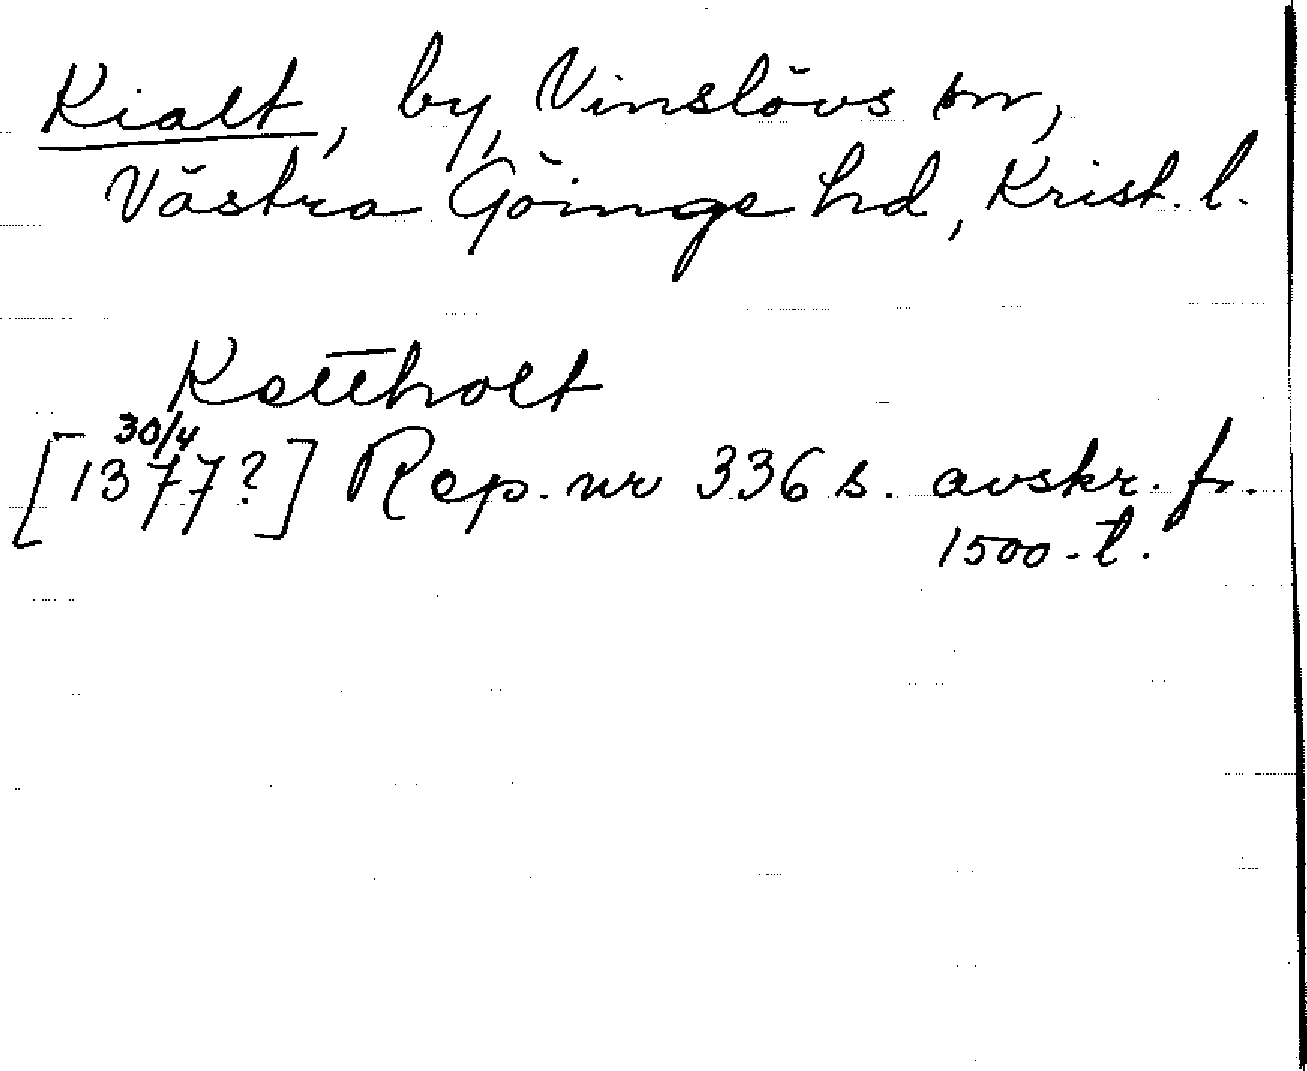 Kialt, by, Vinslövs sn,
Västra Göinge hd, Krist. l.
Kettholt
[30/4 1377?] Rep. nr 336 s. avskr. fr.
1500-t.